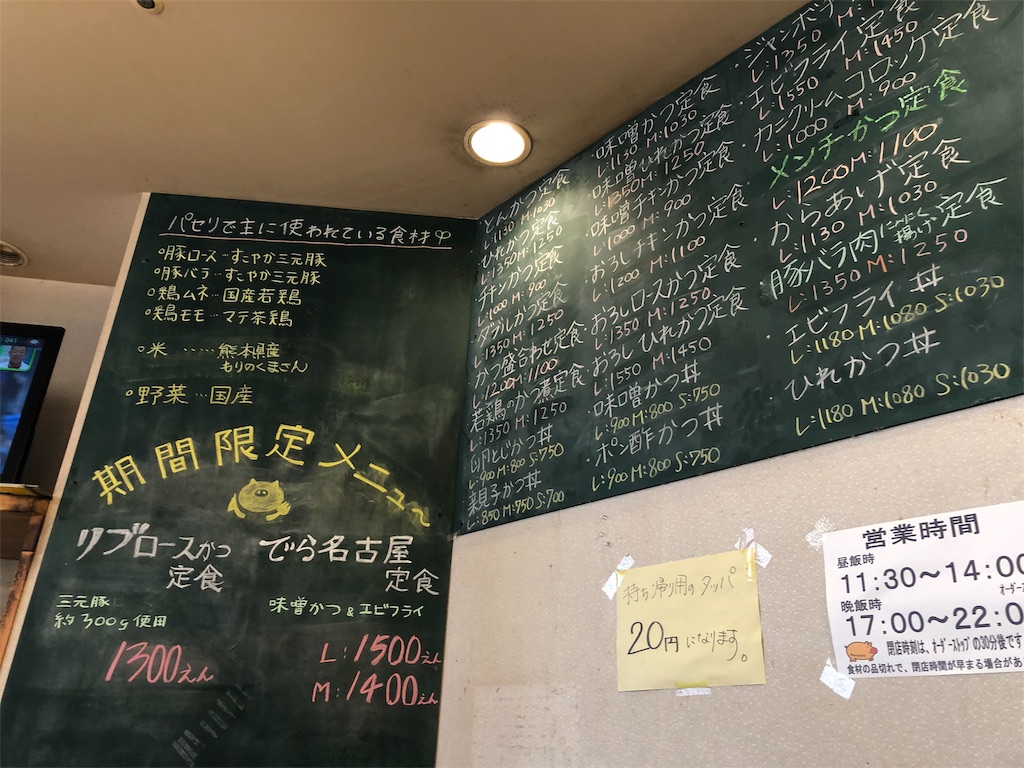 パセリで主に使われている食材
◦豚ロース…すこやか三元豚
◦豚バラ…すこやか三元豚
◦鶏ムネ…国産若鶏
◦鶏モモ…マテ茶鶏
◦米……熊本県産
もりのくまさん
◦野菜…国産
期間限定メニュー
リブロースかつ
定食
三元豚
約300g使用
1300えん
でら名古屋
定食
味噌かつ&エビフライ
L:1500えん
M:1400えん
とんかつ定食
L:1130 M:1030
ひれかつ定食
L:1350 M:1250
チキンかつ定食
L:1000 M:900
ダブルかつ定食
L:1350 M:1250
かつ盛合わせ定食
L:1200 M:1100
若鶏のかつ煮定食
L:1350 M:1250
卵とじかつ丼
L:900 M:800 S:750
親子かつ丼
L:850 M:750 S:700
・味噌かつ定食
L:1130 M:1030
・味噌ひれかつ定食
L:1350 M:1250
・味噌チキンかつ定食
L:1000 M:900
・おろしチキンかつ定食
L:1200 M:1100
・おろしロースかつ定食
L:1350 M:1250
・おろしひれかつ定食
L:1550 M:1450
・味噌かつ丼
L:900 M:800 S:750
・ポン酢かつ丼
L:900 M:800 S:750
・ジャンボ
L:1350 M:
・エビフライ定食
L:1550 M:1450
・カニクリームコロッケ定食
L:1000 M:900
・メンチかつ定食
L:1200 M:1100
・からあげ定食
L:1130 M:1030
・豚バラ肉にんにく揚げ定食
L:1350 M:1250
・エビフライ丼
L:1180 M:1080 S:1030
・ひれかつ丼
L:1180 M:1080 S:1030
持ち帰り用のタッパ
20円になります。
営業時間
昼飯時
11:30〜14:00
オーダーストッ
晩飯時
17:00〜22:0
閉店時刻は、オーダーストップの30分後です
食材の品切れで、閉店時間が早まる場合があ